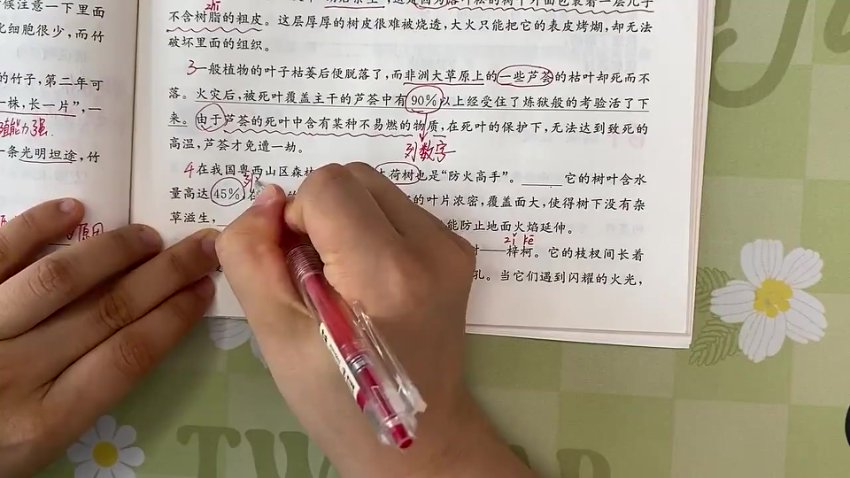 候注意一下里面
化细胞很少，而竹
的竹子，第二年可
一株，长一片”，一
殖能力强
一条光明坦途，竹
原因
zhī
不含树脂的粗皮。这层厚厚的树皮很难被烧透，大火只能把它的表皮烤煳，却无法
破坏里面的组织。
3一般植物的叶子枯萎后便脱落了，而非洲大草原上的一些芦荟的枯叶却死而不
落。火灾后，被死叶覆盖主干的芦荟中有90%以上经受住了炼狱般的考验活了下
来。由于芦荟的死叶中含有某种不易燃的物质，在死叶的保护下，无法达到致死的
高温，芦荟才免遭一劫。
列数字
4在我国粤西山区森林
荷树也是“防火高手”。 它的树叶含水
列
量高达45%，在
的叶片浓密，覆盖面大，使得树下没有杂
草滋生，
能防止地面火焰延伸。
zǐ kē
梓柯。它的枝杈间长着
孔。当它们遇到闪耀的火光，